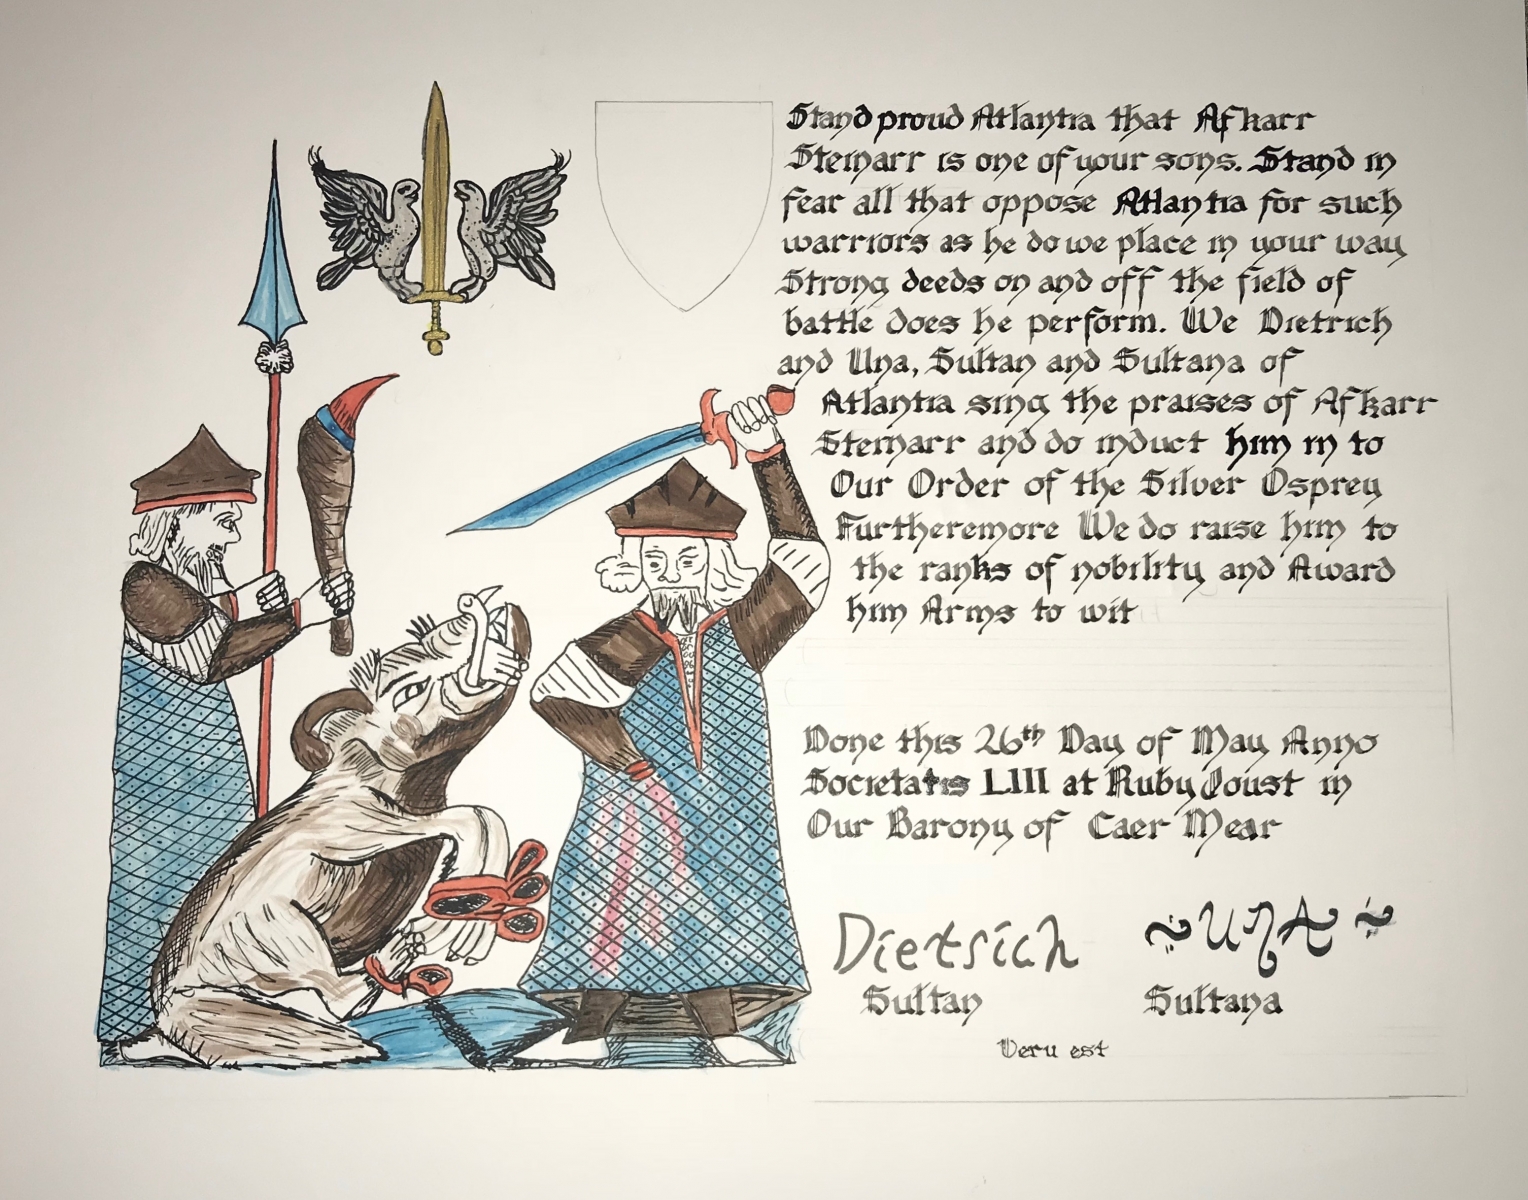 Stand proud Atlantia that Afkarr
Steinarr is one of your sons. Stand in
fear all that oppose Atlantia for such
warriors as he do we place in your way
Strong deeds on and off the field of
battle does he perform. We Dietrich
and Una, Sultan and Sultana of
Atlantia sing the praises of Afkarr
Steinarr and do induct him in to
Our Order of the Silver Osprey
Furtheremore We do raise him to
the ranks of nobility and Award
him Arms to wit
Done this 26th Day of May Anno
Societatis LIII at Ruby Joust in
Our Barony of Caer Mear
Dietrich ~UNA~
Sultan Sultana
Veru est